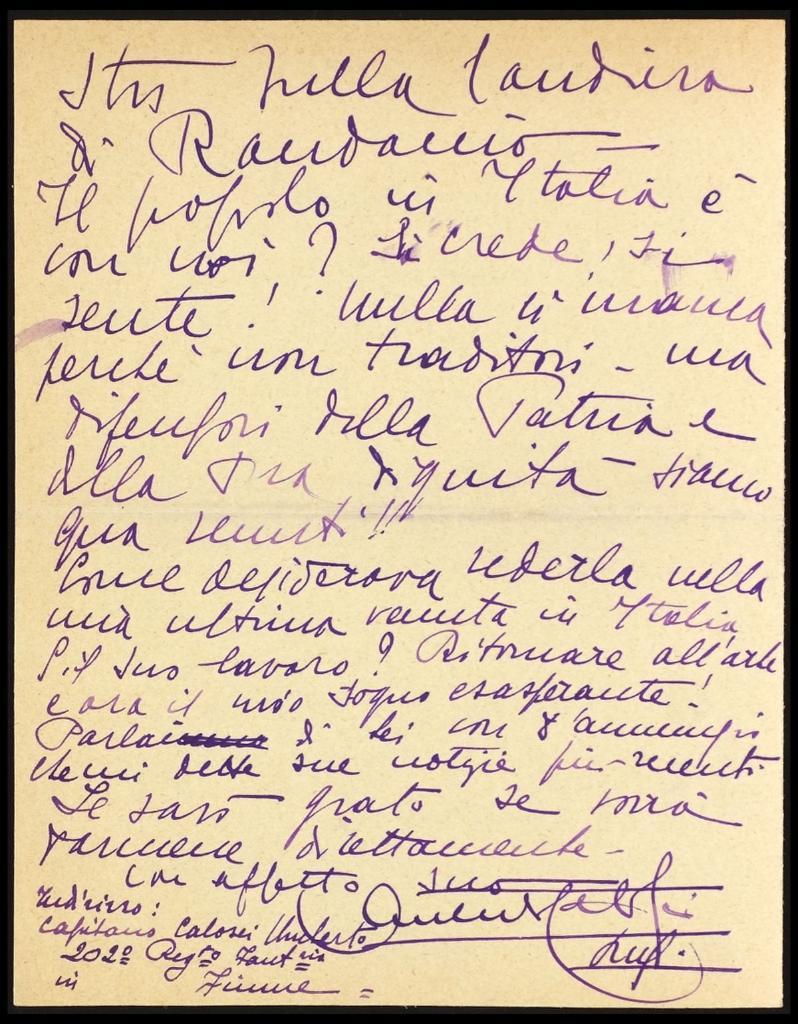 sulla
di Randaccio —
Il popolo in Italia è
con noi? Si crede, si
sente! Nulla ci manca
perchè non traditori - ma
difensori della Patria e
della sua dignità siamo
qua venuti!!!
Come desideravo vederla nella
mia ultima venuta in Italia
E il suo lavoro? Ritornare all'arte
è ora il mio sogno esasperante!
Parlai di Lei con d'Annunzio
che mi dette sue notizie più recenti
Le sarò grato se vorrà
darmene direttamente -
Con affetto suo
Indirizzo:
Capitano Calosci Umberto
202º Regto Fantria
in Fiume =